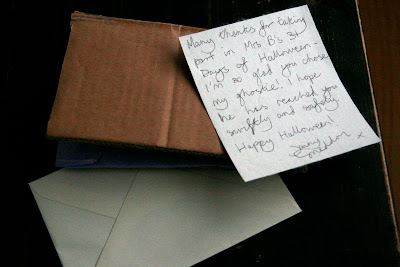 Many thanks for taking
part in Mrs B's 31
Days of Halloween.
I'm so glad you chose
my ghostie! I hope
he has reached you
swiftly and safely.
Happy Halloween!
x